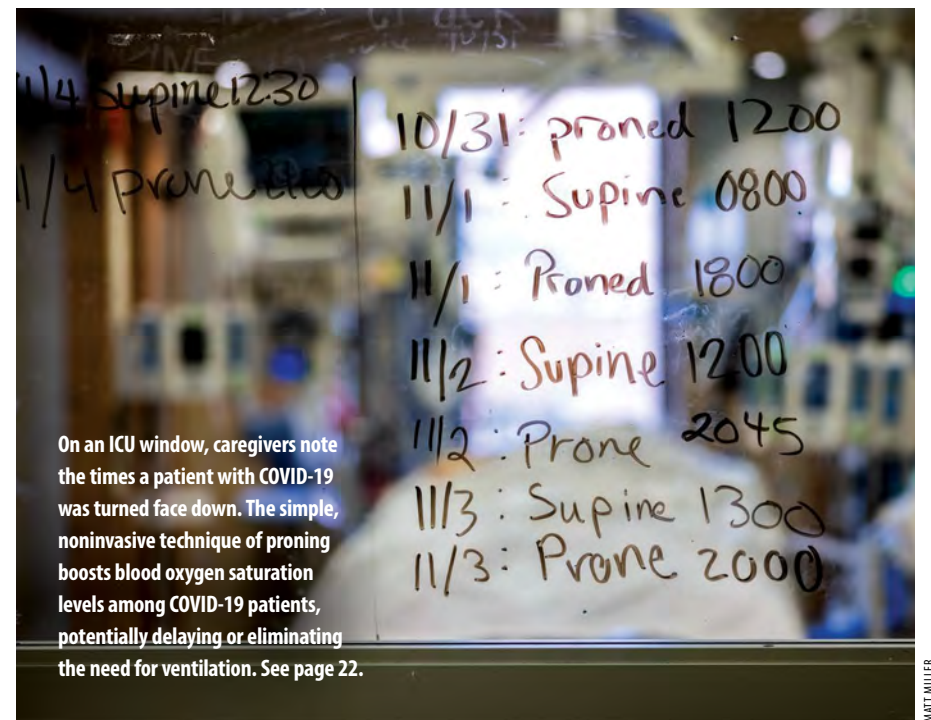 1/4 supine 1230
1/4 prone
10/31: proned 1200
11/1: Supine 0800
11/1: Proned 1800
11/2: Supine 1200
11/2: Prone 2045
11/3: Supine 1300
11/3: Prone 2000
On an ICU window, caregivers note
the times a patient with COVID-19
was turned face down. The simple,
noninvasive technique of proning
boosts blood oxygen saturation
levels among COVID-19 patients,
potentially delaying or eliminating
the need for ventilation. See page 22.
MATT MILLER